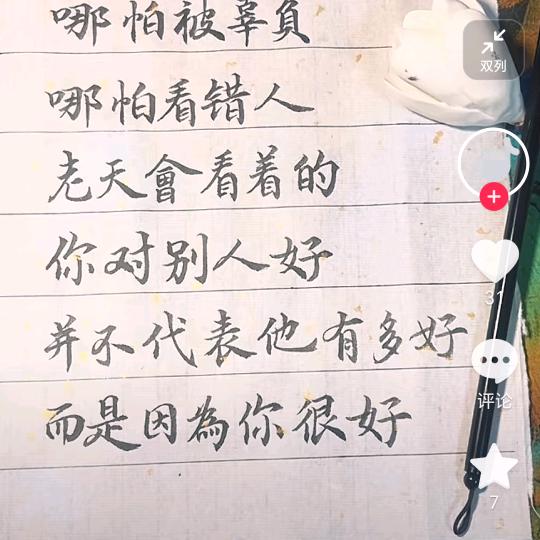 哪怕被辜負
哪怕看错人
老天會看着的
你对别人好
并不代表他有多好
而是因為你很好
双列
31
评论
7